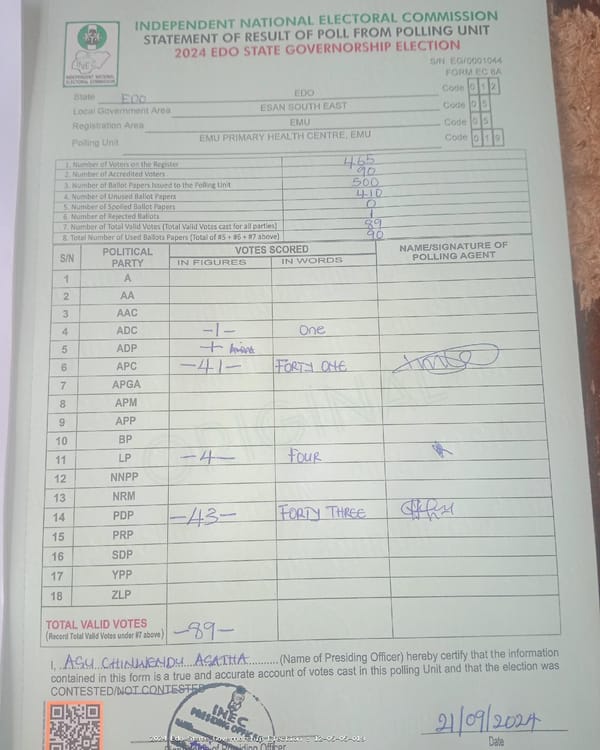 INDEPENDENT NATIONAL ELECTORAL COMMISSION
STATEMENT OF RESULT OF POLL FROM POLLING UNIT
2024 EDO STATE GOVERNORSHIP ELECTION
INEC
INDEPENDENT NATIONAL ELECTORAL COMMISSION
S/N. EG/0001044
FORM EC 8A
State EDO EDO Code 1 2
Local Government Area ESAN SOUTH EAST Code 0 5
Registration Area EMU Code 0 5
Polling Unit EMU PRIMARY HEALTH CENTRE, EMU Code 0 1
1. Number of Voters on the Register 465
2. Number of Accredited Voters 90
3. Number of Ballot Papers Issued to the Polling Unit 500
4. Number of Unused Ballot Papers 410
5. Number of Spoiled Ballot Papers 0
6. Number of Rejected Ballots 1
7. Number of Total Valid Votes (Total Valid Votes cast for all parties) 89
8. Total Number of Used Ballots Papers (Total of #5 + #6 + #7 above) 90
S/N POLITICAL PARTY VOTES SCORED NAME/SIGNATURE OF POLLING AGENT
IN FIGURES IN WORDS
1 A
2 AA
3 AAC
4 ADC -1- One
5 ADP
6 APC -41- FORTY ONE
7 APGA
8 APM
9 APP
10 BP
11 LP -4- FOUR
12 NNPP
13 NRM
14 PDP -43- FORTY THREE
15 PRP
16 SDP
17 YPP
18 ZLP
ORIGINAL
TOTAL VALID VOTES -89-
(Record Total Valid Votes under #7 above)
I, ASU CHINWENDU AGATHA (Name of Presiding Officer) hereby certify that the information
contained in this form is a true and accurate account of votes cast in this polling Unit and that the election was
CONTESTED/NOT CONTESTED
INEC
PRESIDING
21/09/2024
of Presiding Officer
Date